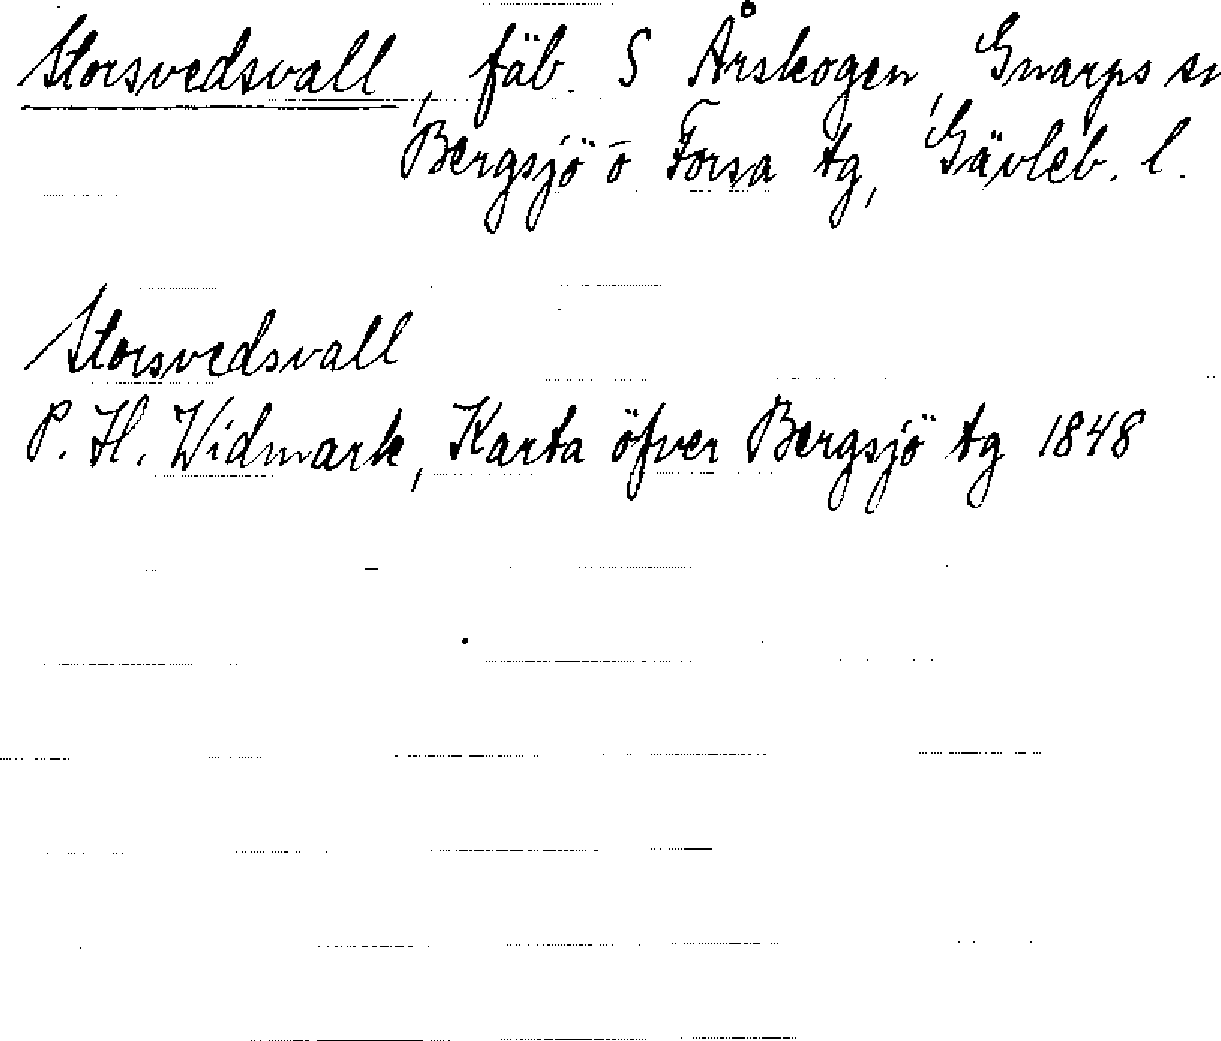 Storsvedsvall, fäb. S Årskogen, Gnarps sn
Bergsjö o Forsa tg, Gävleb. l.
Storsvedsvall
P. H. Widmark, Karta öfver Bergsjö tg 1848